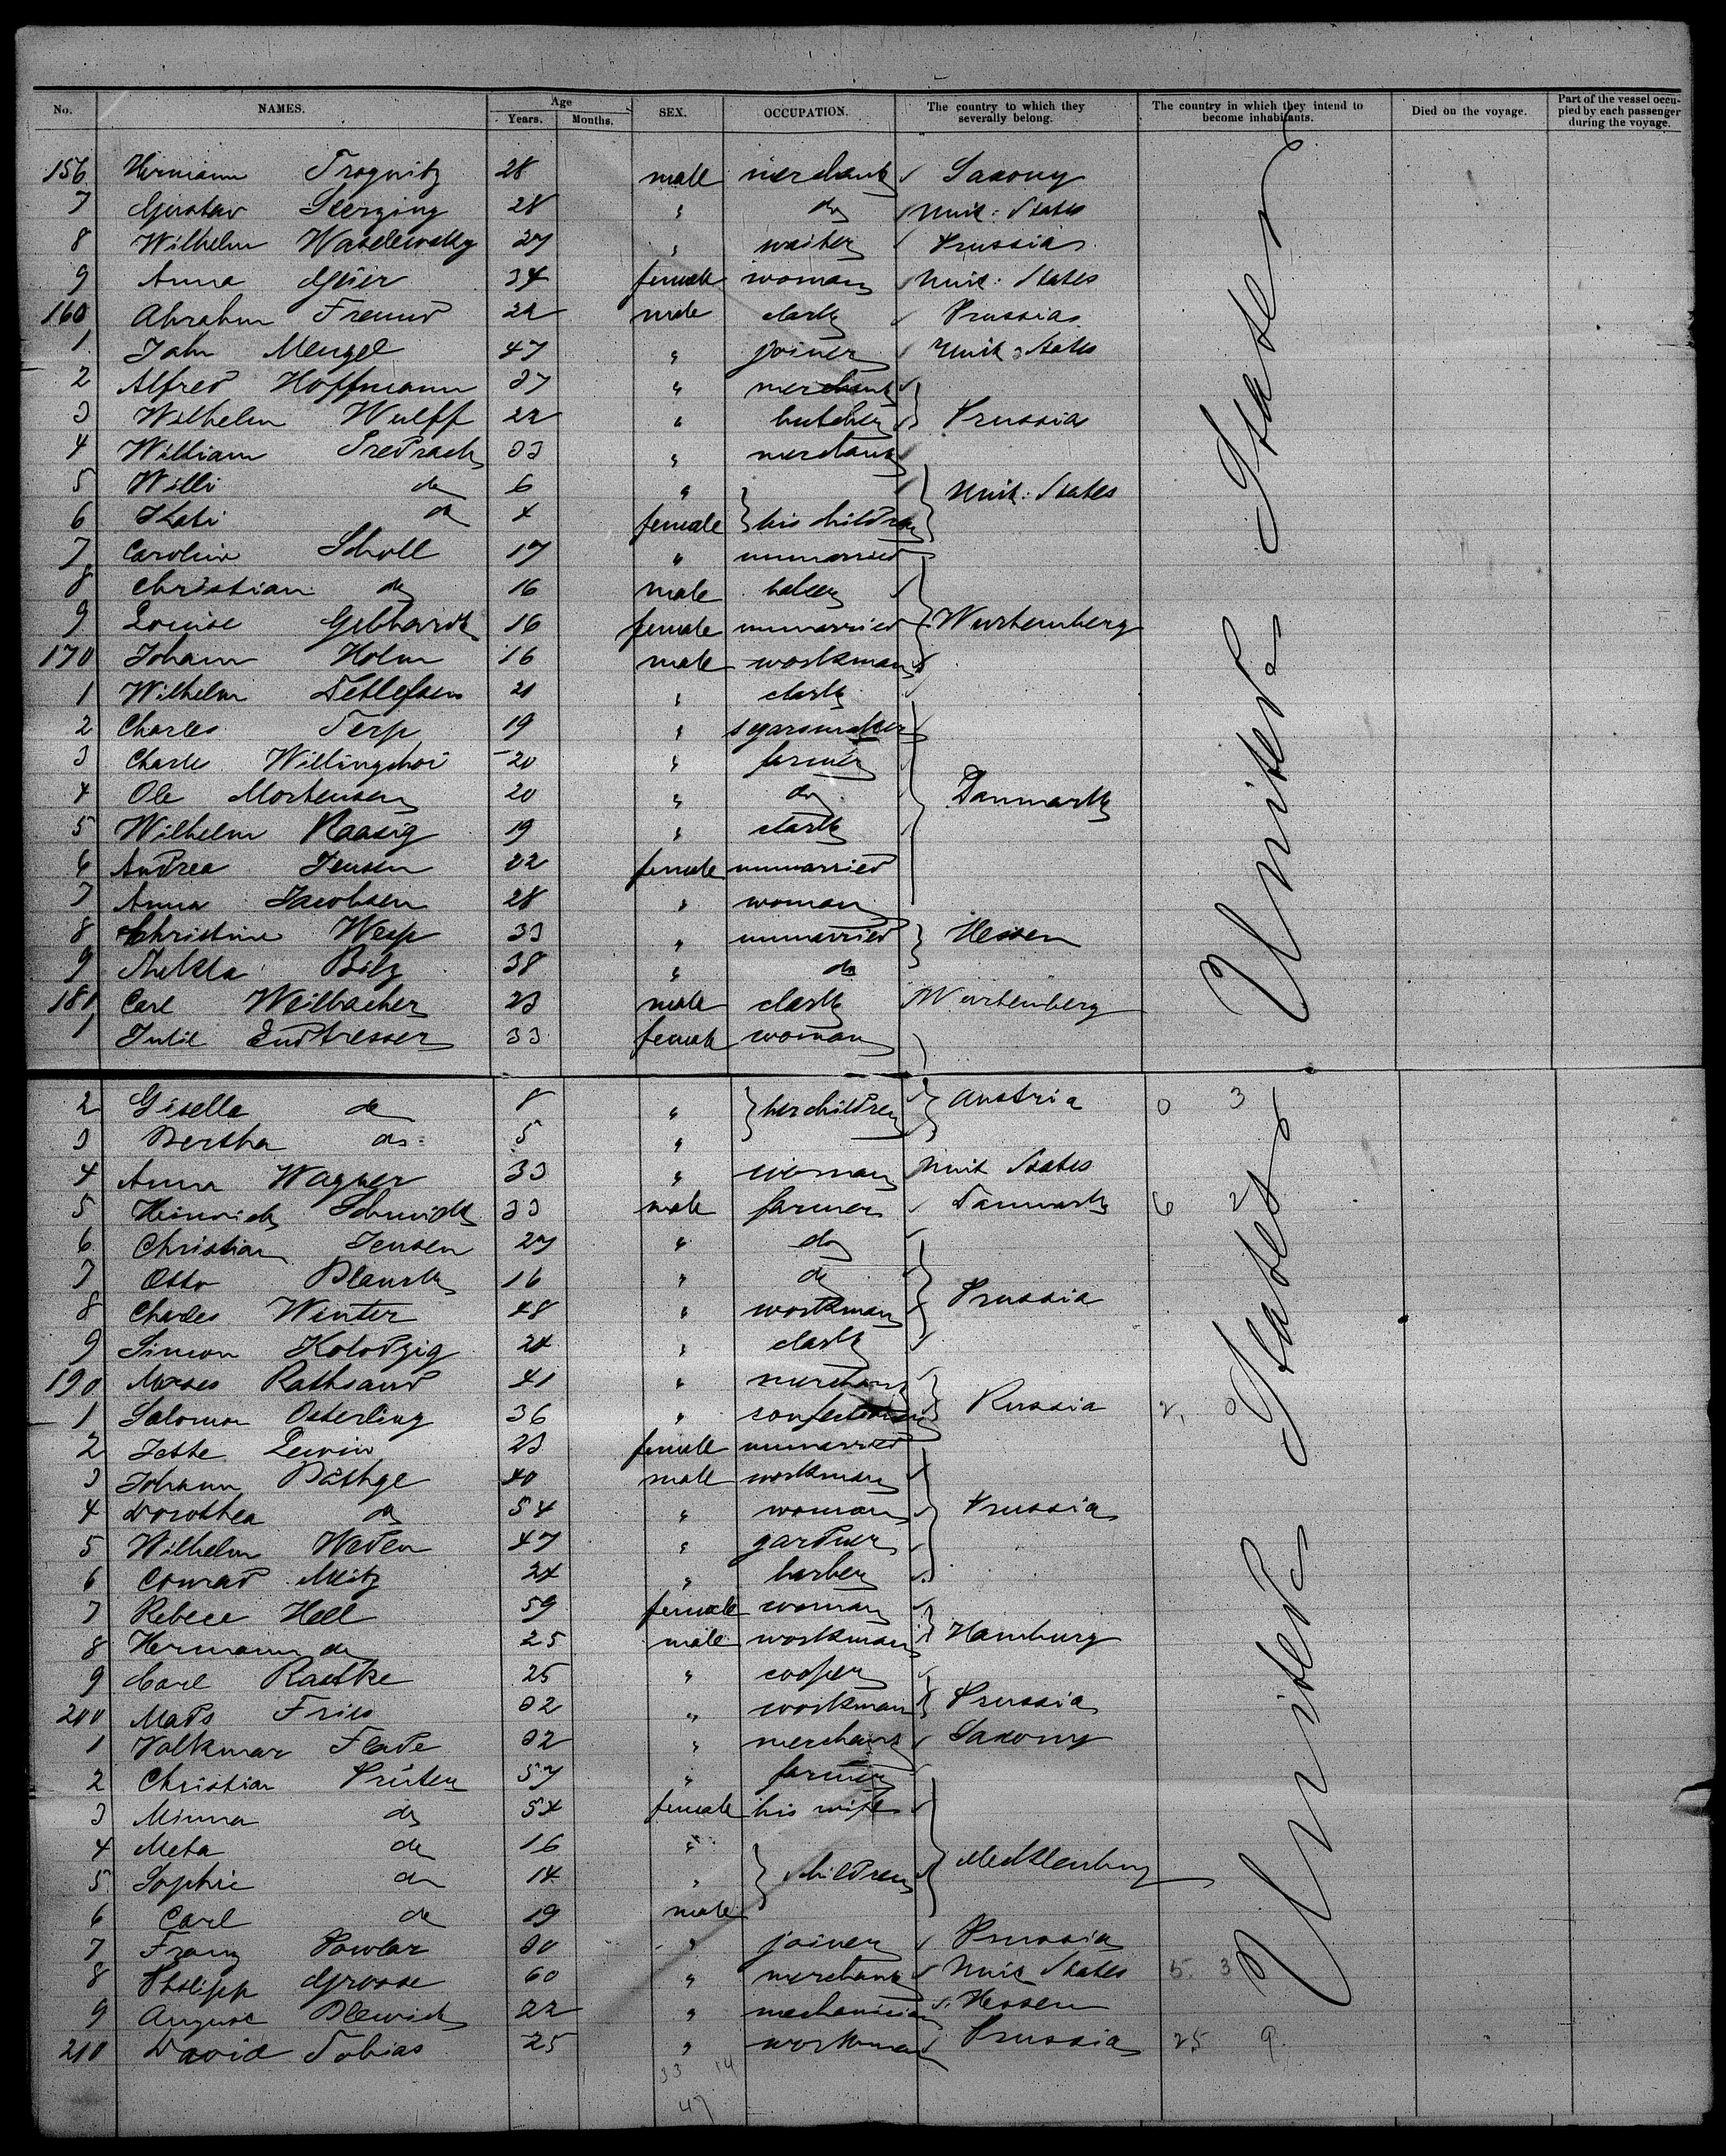 No. NAMES. Age Years. Months. SEX. OCCUPATION. The country to which they severally belong. The country in which they intend to become inhabitants. Died on the voyage. Part of the vessel occupied by each passenger during the voyage.
156 Hermann Trognitz 28 male merchant Saxony
7 Gustav 28 " do Unit: States
8 Wilhelm Waselewsky 27 " waiter Prussia
9 Anna Geier 34 female woman Unit: States
160 Abrahm Freund 22 male clark Prussia
1 John Mengel 47 " joiner Unit States
2 Alfred Hoffmann 37 " merchant
3 Wilhelm Wulff 22 " butcher Prussia
4 William 33 " merchant
5 Willi do 6 " Unit: States
6 Kati do 4 female his children
7 Caroline Scholl 17 " unmarried
8 Christian do 16 male
9 Louise Gebhardt 16 female unmarried Wurtemberg
170 Johann Holm 16 male workman
1 Wilhelm Detlefsen 21 " clark
2 Charles Terp 19 " segarsmaker
3 Charls 20 " farmer
4 Ole Mortensen 20 " do Danmark
5 Wilhelm Raasig 19 " clark
6 Andrea Jensen 22 female unmarried
7 Anna Jacobsen 28 " woman
8 Christine Wesp 33 " unmarried Hessen
9 Thekla Bilz 38 " do
180 Carl Weilbacher 23 male clark Wurtemberg
1 Julie Endtresser 33 female woman
United States
2 Gisella do 8 " her children Austria 0 3
3 Bertha do: 5 "
4 Anna Wagner 33 " woman Unit States
5 Heinrich Schmidt 33 male farmer Danmark 6 2
6 Christian Jensen 27 " do
7 Otto Blanck 16 " do
8 Charles Winter 48 " workman Prussia
9 Simon Kolodzig 24 " clark
190 Moses Rathsand 41 " merchant
1 Salomon Osterling 36 " Russia 2, 0
2 Jette Lewin 23 female unmarried
3 Johann Päthge 40 male workman
4 Dorothea do 54 " woman Prussia
5 Wilhelm Weden 47 " gardner
6 Conrad Mitz 24 " barber
7 Rebece Hell 59 female woman
8 Hermann do 25 male workman Hamburg
9 Carl Radtke 25 " cooper
200 Mads Friis 32 " workman Prussia
1 Volkmar Flade 32 " merchant Saxony
2 Christian Prüter 57 " farmer
3 Minna do 54 female his wife
4 Meta do 16 "
5 Sophie do 14 " children Mecklenburg
6 Carl do 19 male
7 Franz Powlar 30 " joiner Prussia
8 Philipp Groose 60 " merchant Unit States 5. 3
9 August 22 " mechanician Hessen
210 David Tobias 25 " workman Prussia 25 9
United States
33 14
47